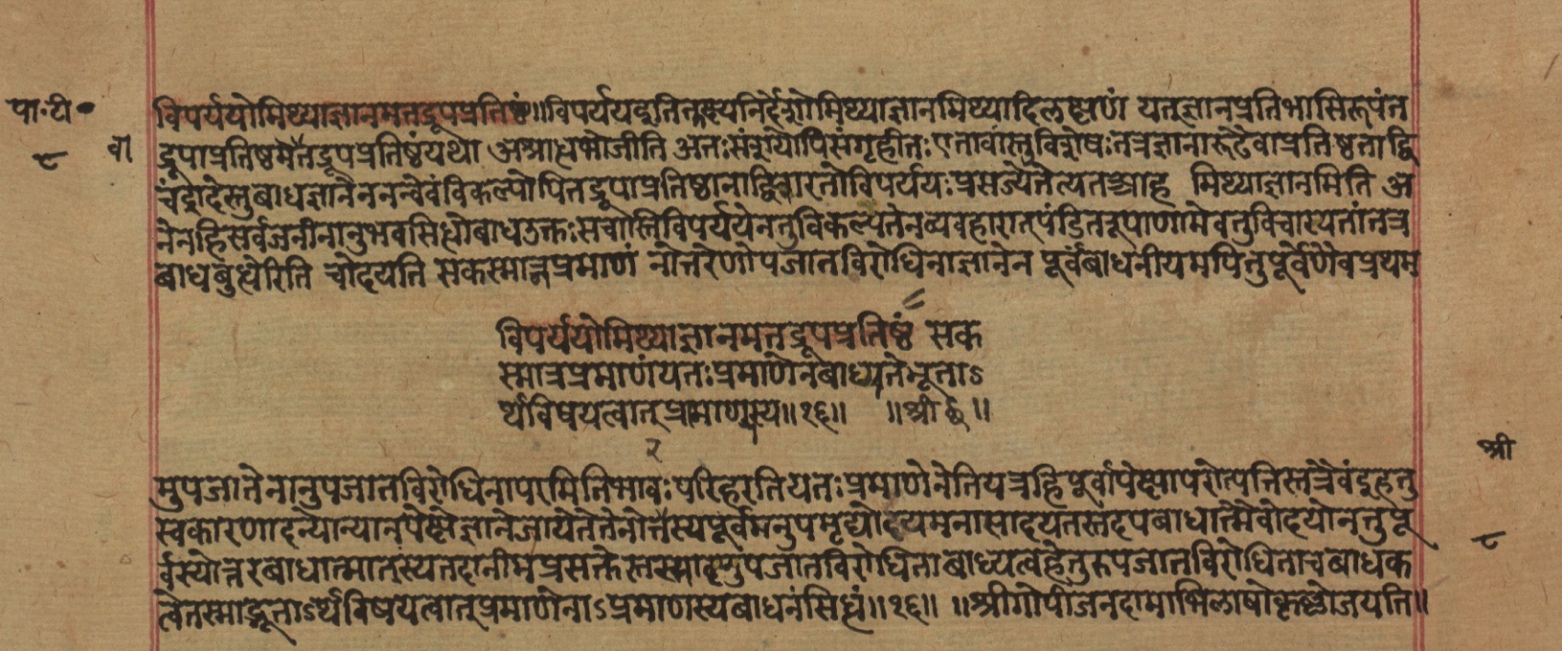 पा॰टी॰
८
वा
विपर्ययोमिथ्याज्ञानमतद्रूपप्रतिष्ठं॥विपर्ययइतिलक्ष्यनिर्देशोमिथ्याज्ञानमिथ्यादिलक्षणं यत्ज्ञानप्रतिभासिरूपंत
द्रूपाप्रतिष्ठमेवतद्रूपप्रतिष्ठंयथा अश्राद्धभोजीति अतःसंशयोपिसंगृहीतःएतावांस्तुविशेषःतत्रज्ञानारूढैवाप्रतिष्ठताद्वि
चंद्रादेस्तुबाधज्ञानेननन्वेवंविकल्पोपितद्रूपाप्रतिष्ठानाद्विचारतोविपर्ययःप्रसज्येतेत्यतआह मिथ्याज्ञानमिति अ
नेनहिसर्वजनीनानुभवसिद्धोबाधउक्तःसचास्तिविपर्ययेनतुविकल्पेतेनव्यवहारात्पंडितरूपाणामेवतुविचारयतांतत्र
बाधबुद्धेरिति चोदयति सकस्मान्नप्रमाणं नोत्तरेणोपजातविरोधिनाज्ञानेन पूर्वंबाधनीयमपितुपूर्वेणैवप्रथम
विपर्ययोमिथ्याज्ञानमतद्रूपप्रतिष्ठं सक
स्मान्नप्रमाणंयतःप्रमाणेनबाध्यतेभूताऽ
र्थविषयत्वात्प्रमाणस्य॥१६॥ ॥श्रीछ॥
२
श्री
मुपजातेनानुपजातविरोधिनापरमितिभावःपरिहरतियतःप्रमाणेनेतियत्रहिपूर्वापेक्षापरोत्पत्तिस्तत्रैवंइहतु
स्वकारणादन्योन्यानपेक्षेज्ञानेजायेतेतेनोत्तरस्यपूर्वमनुपमृद्योदयमनासादयतस्तदपबाधात्मैवोदयोनतुपू
र्वस्योत्तरबाधात्मातस्यतदानीमप्रसक्तेस्तस्मादनुपजातविरोधिताबाध्यत्वेहेतुरुपजातविरोधिताचबाधक
८
त्वेतस्माद्भूताऽर्थविषयत्वात्प्रमाणेनाऽप्रमाणस्यबाधनंसिद्धं॥१६॥ ॥श्रीगोपीजनदामाभिलाषोकृष्णोजयति॥